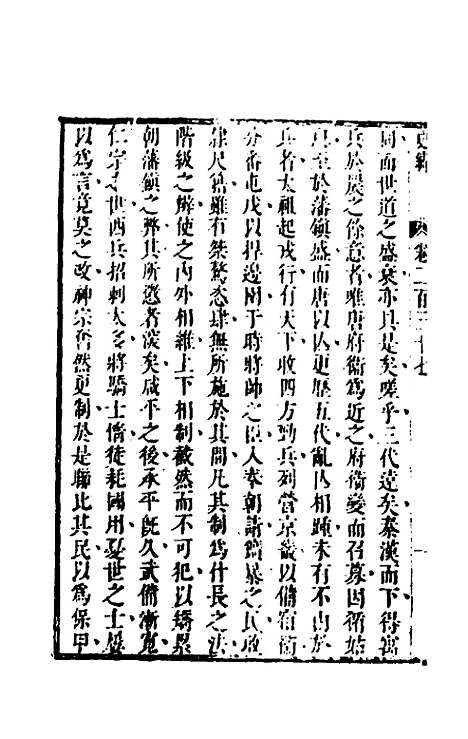 史緯 卷二百三十七 一
同而世道之盛衰亦具是矣嗟乎三代遠矣秦漢而下得寓
兵於農之餘意者唯唐府衛爲近之府衛變而召募因循姑
息至於藩鎮盛而唐以亡更歷五代亂亡相踵未有不由於
兵者太祖起戎行有天下收四方勁兵列營京畿以備宿衛
分番屯戍以捍邊圉于時將帥之臣入奉朝請獷暴之民收
隸尺籍雖有桀驁恣肆無所施於其間凡其制爲什長之法
階級之辨使之內外相維上下相制截然而不可犯以矯累
朝藩鎮之弊其所懲者深矣咸平之後承平旣久武備漸寬
仁宗之世西兵招刺太多將驕士惰徒耗國用憂世之士屢
以爲言竟莫之改神宗奮然更制於是聯比其民以爲保甲